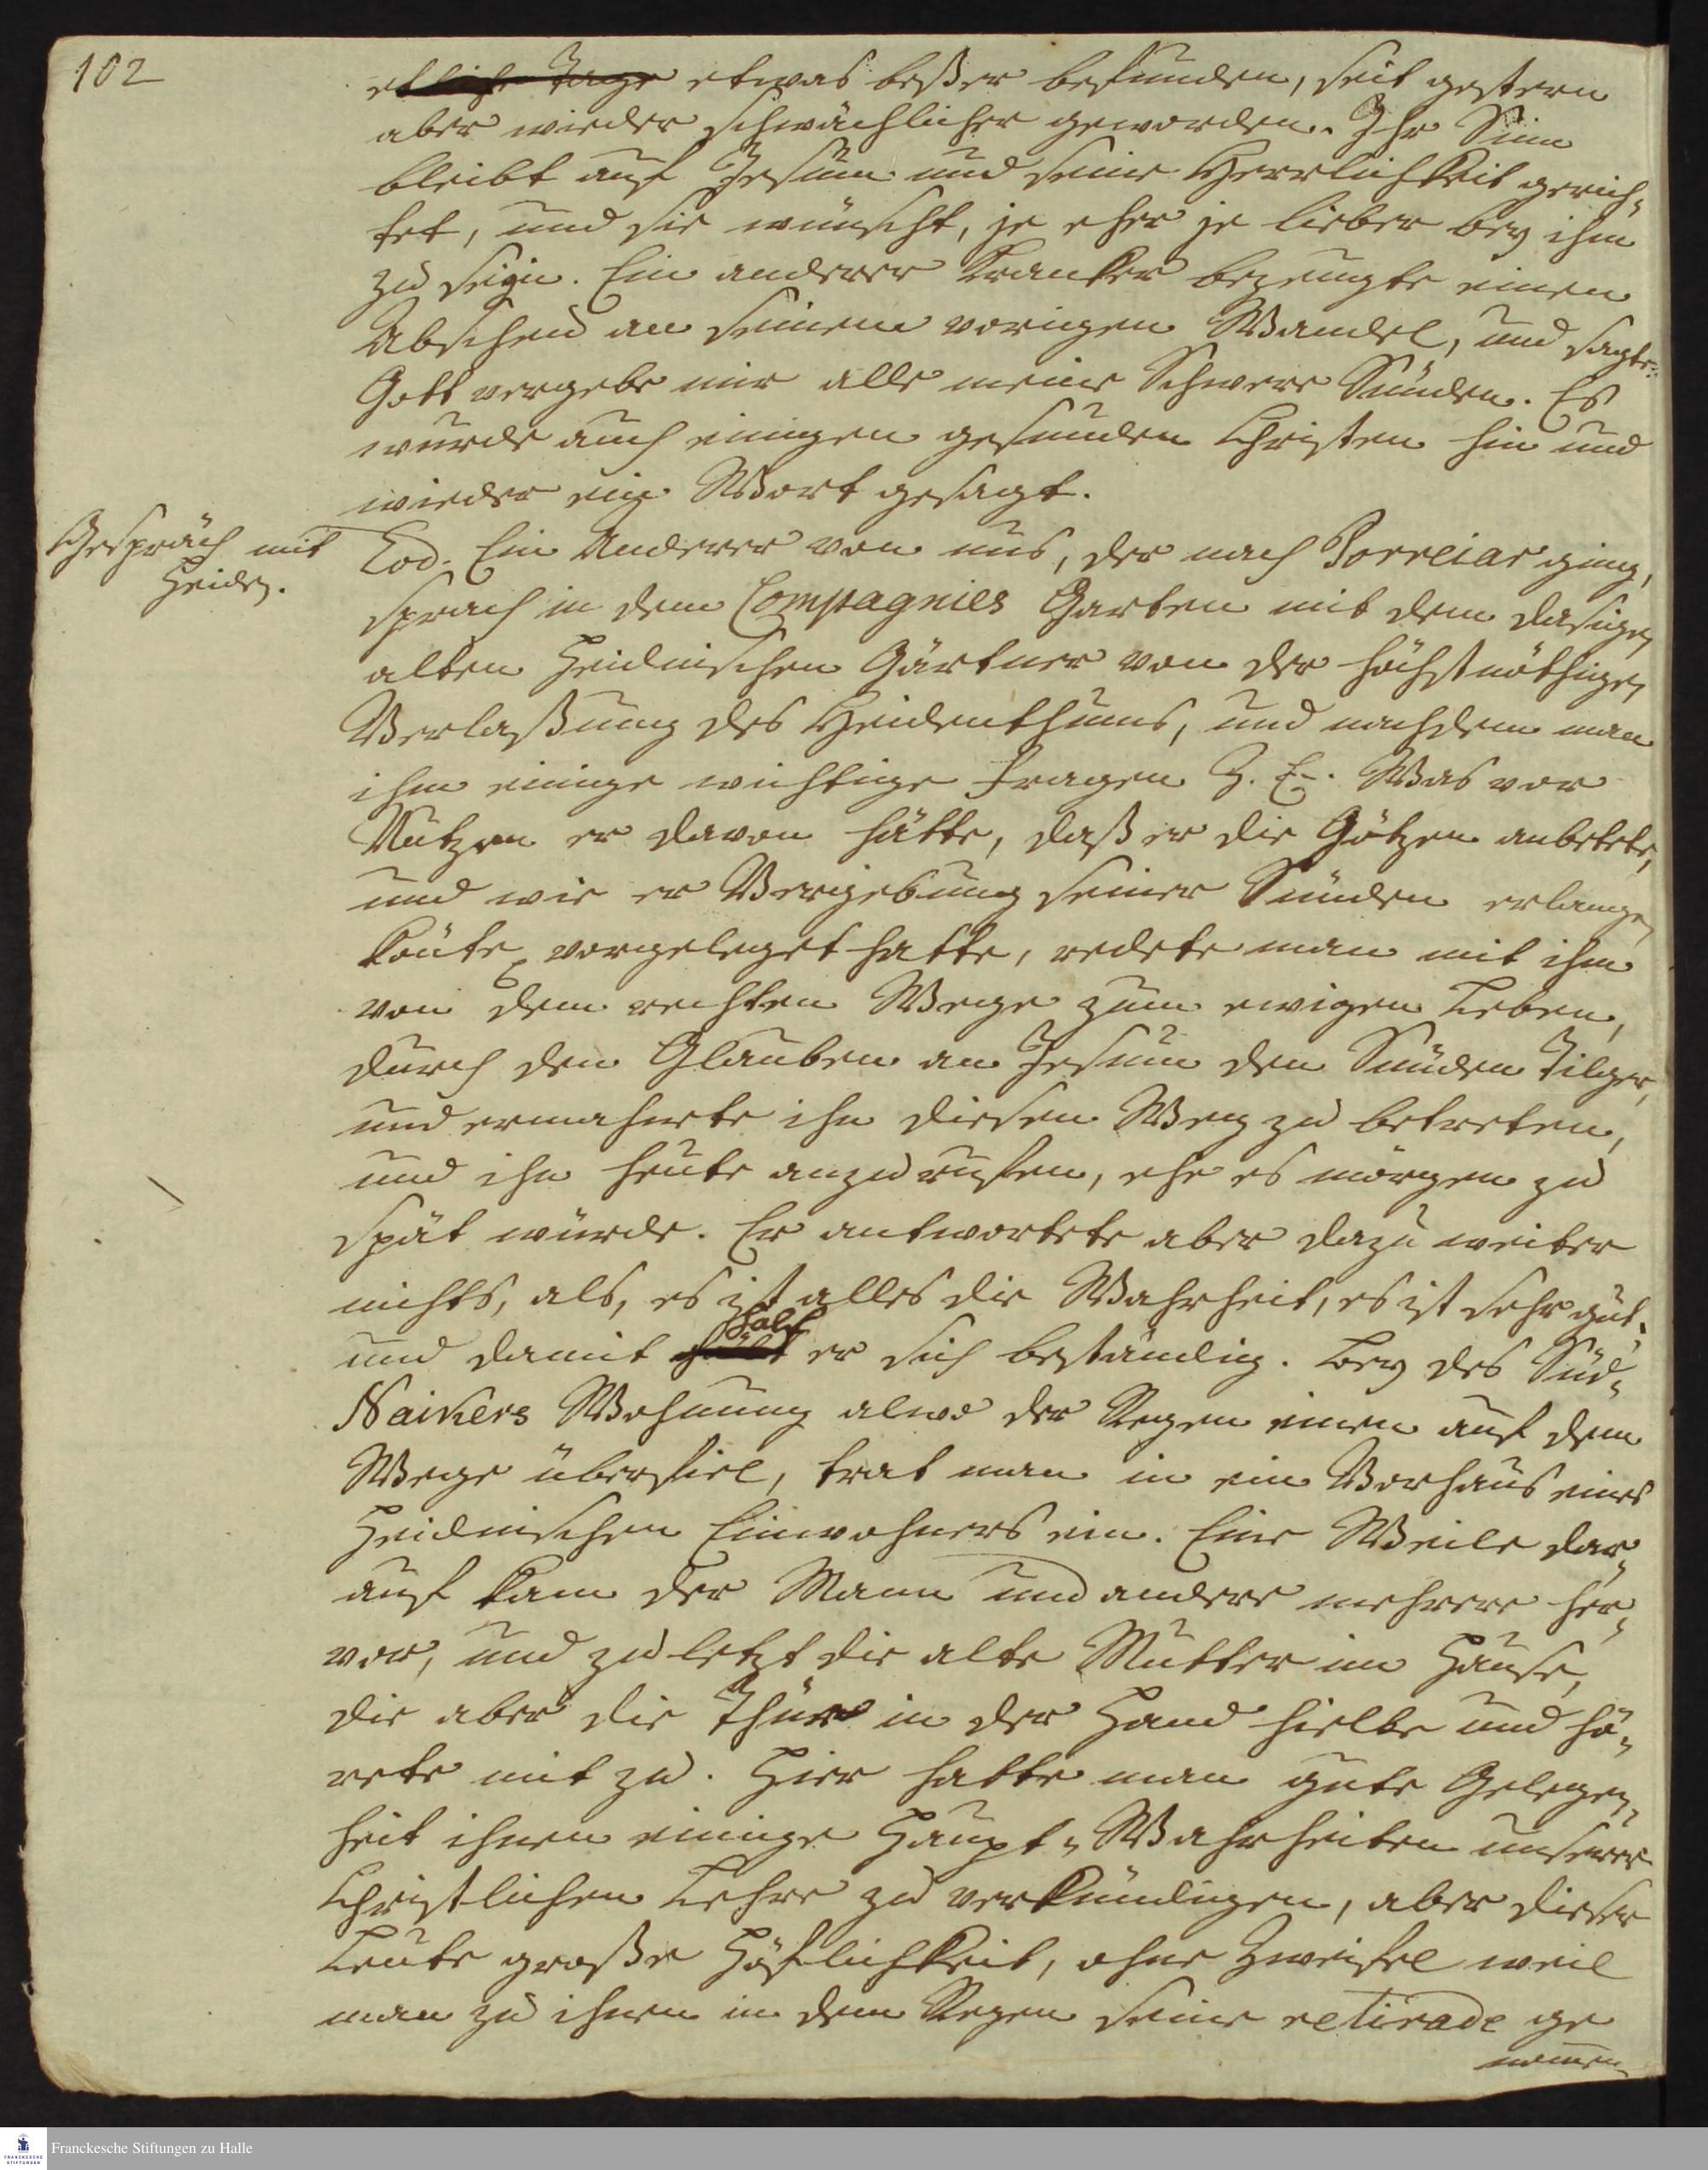 102
etliche Tage etwas beßer befunden, seit gestern
aber wieder schwächlicher geworden. Ihr Sinn
bleibt auf Jesum und seine Herrlichkeit gerich-
tet, und sie wünscht, je eher je lieber bey ihm
zu seyn. Ein anderer Kranker bezeugte einen
Abscheu an seinem vorigen Wandel, und sagte:
Gott vergebe mir alle meine schwere Sünden. Es
wurde auch einigen gesunden Christen hin und
wieder ein Wort gesagt.
Gespräch mit
Heiden.
Eod. Ein Anderer von uns, der nach Porreiar ging,
sprach in dem Compagnies Garten mit dem dasigen
alten Heidnischen Gärtner von der höchstnöthigen
Verlaßung des Heidenthums, und nachdem man
ihm einige wichtige Fragen z. E. Was vor
Nutzen er davon hätte, daß er die Götzen anbetete,
und wie er Vergebung seiner Sünden erlangen
könte, vorgeleget hatte, redete man mit ihm
von dem rechten Wege zum ewigen Leben,
durch den Glauben an Jesum den Sünden Tilger,
und ermahnte ihn diesen Weg zu betreten,
und ihn heute anzurufen, ehe es morgen zu
spät würde. Er antwortete aber dazu weiter
nichts, als, es ist alles die Wahrheit, es ist sehr gut.
und damit half er sich beständig. Bey des Süd-
Naikers Wohnung alwo der Regen einen auf dem
Wege überfiel, trat man in ein Vorhaus eines
Heidnischen Einwohners ein. Eine Weile dar-
auf kam der Mann und andere mehrere her-
vor, und zuletzt die alte Mutter im Hause,
die aber die Thür in der Hand hielte und hö-
rete mit zu. Hier hatte man gute Gelegen-
heit ihnen einige Haupt-Wahrheiten unserer
Christlichen Lehre zu verkündigen, aber dieser
Leute große Höflichkeit, ohne Zweifel weil
man zu ihnen in dem Regen seine retirade ge
nommen
Franckesche Stiftungen zu Halle